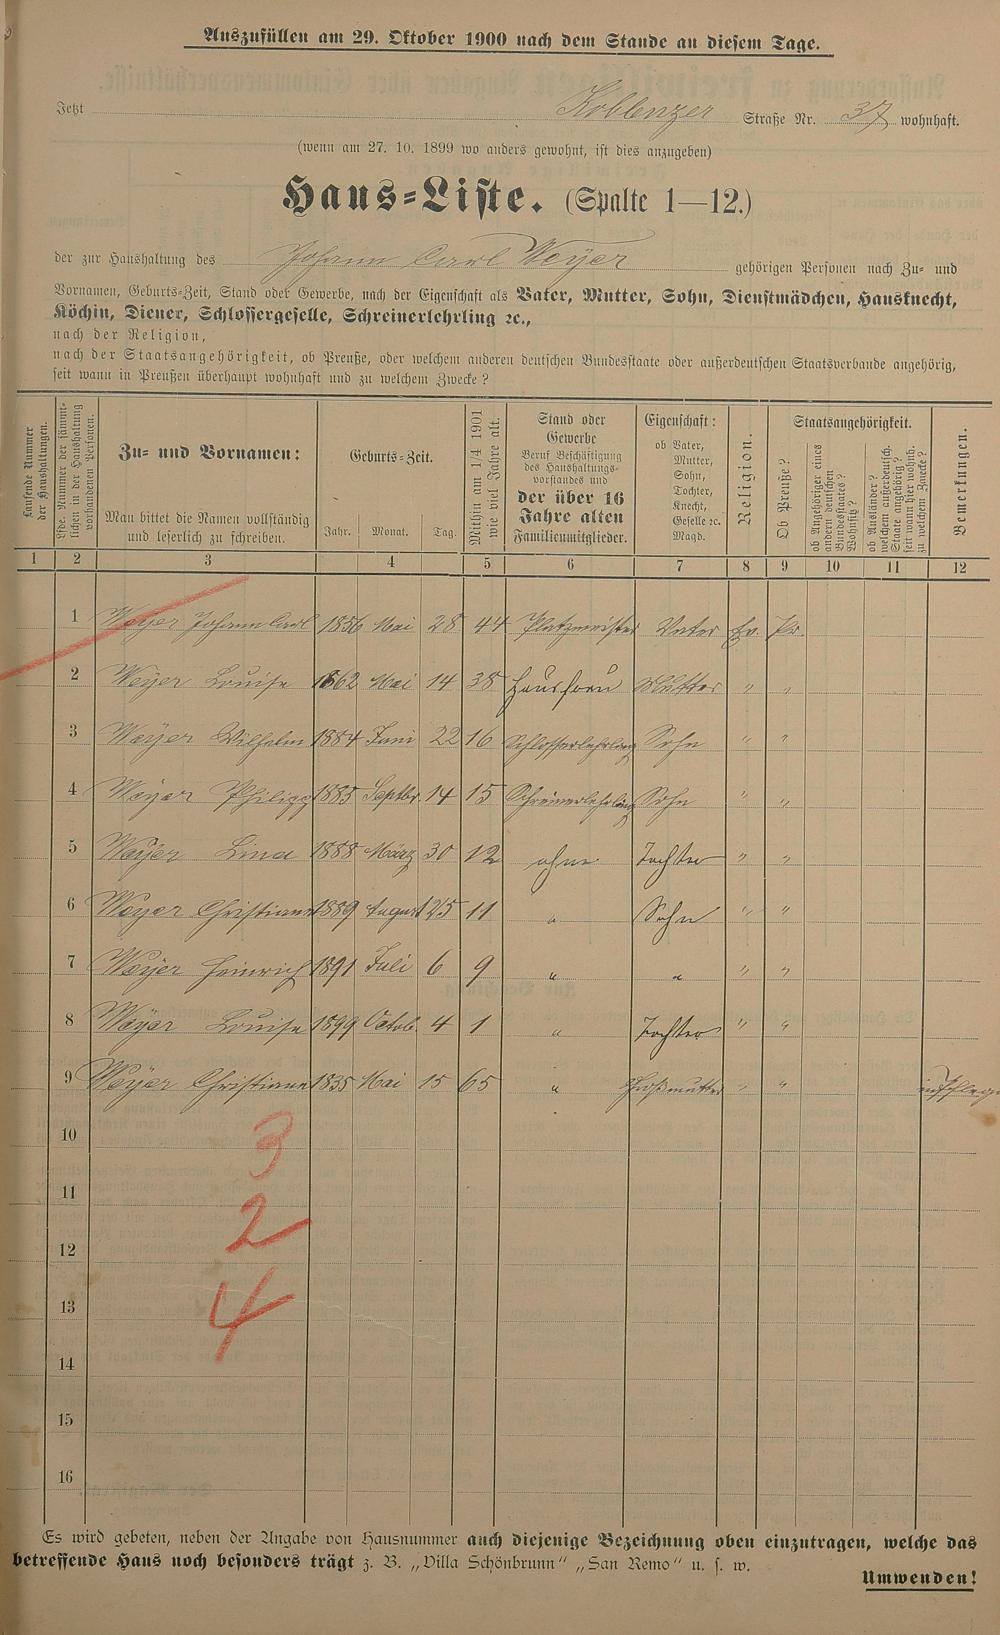 Auszufüllen am 29. Oktober 1900 nach dem Stande an diesem Tage.
Jetzt Koblenzer Straße Nr. 37 wohnhaft.
(wenn am 27. 10. 1899 wo anders gewohnt, ist dies anzugeben)
Haus-Liste. (Spalte 1—12.)
der zur Haushaltung des Johann Carl Weyer gehörigen Personen nach Zu- und
Vornamen, Geburts-Zeit, Stand oder Gewerbe, nach der Eigenschaft als Vater, Mutter, Sohn, Dienstmädchen, Hausknecht,
Köchin, Diener, Schlossergeselle, Schreinerlehrling ꝛc.,
nach der Religion,
nach der Staatsangehörigkeit, ob Preuße, oder welchem anderen deutschen Bundesstaate oder außerdeutschen Staatsverbande angehörig,
seit wann in Preußen überhaupt wohnhaft und zu welchem Zwecke?
Laufende Nummer
der Haushaltungen.
Lfde. Nummer der sämmt-
lichen in der Haushaltung
vorhandenen Personen.
Zu- und Vornamen:
Man bittet die Namen vollständig
und leserlich zu schreiben.
Geburts-Zeit.
Jahr. Monat. Tag.
Mithin am 1/4 1901
wie viel Jahre alt.
Stand oder
Gewerbe
Beruf Beschäftigung
des Haushaltungs-
vorstandes und
der über 16
Jahre alten
Familienmitglieder.
Eigenschaft:
ob Vater,
Mutter,
Sohn,
Tochter,
Knecht,
Geselle ꝛc.
Magd.
Religion.
Staatsangehörigkeit.
Ob Preuße?
ob Angehöriger eines
andern deutschen
Bundesstaates?
Wohnsitz?
ob Ausländer?
welchem außerdeutsch.
Staate angehörig?
seit wann hier wohnh.
zu welchem Zwecke?
Bemerkungen.
1 2 3 4 5 6 7 8 9 10 11 12
1 Weyer Johann Carl 1856 Mai 28 44 Platzmeister Vater Ev. Pr.
2 Weyer Louise 1862 Mai 14 38 Hausfrau Mutter " "
3 Weyer Wilhelm 1884 Juni 22 16 Schlosserlehrling Sohn " "
4 Weyer Philipp 1885 Septbr. 14 15 Schreinerlehrling Sohn " "
5 Weyer Lina 1888 März 30 12 ohne Tochter " "
6 Weyer Christian 1889 August 25 11 " Sohn " "
7 Weyer Heinrich 1891 Juli 6 9 " " " "
8 Weyer Louise 1899 Octob. 4 1 " Tochter " "
9 Weyer Christiane 1835 Mai 15 65 " Großmutter " "
10
3
11
2
12
13
4
14
15
16
Es wird gebeten, neben der Angabe von Hausnummer auch diejenige Bezeichnung oben einzutragen, welche das
betreffende Haus noch besonders trägt z. B. „Villa Schönbrunn“ „San Remo“ u. s. w.
Umwenden!